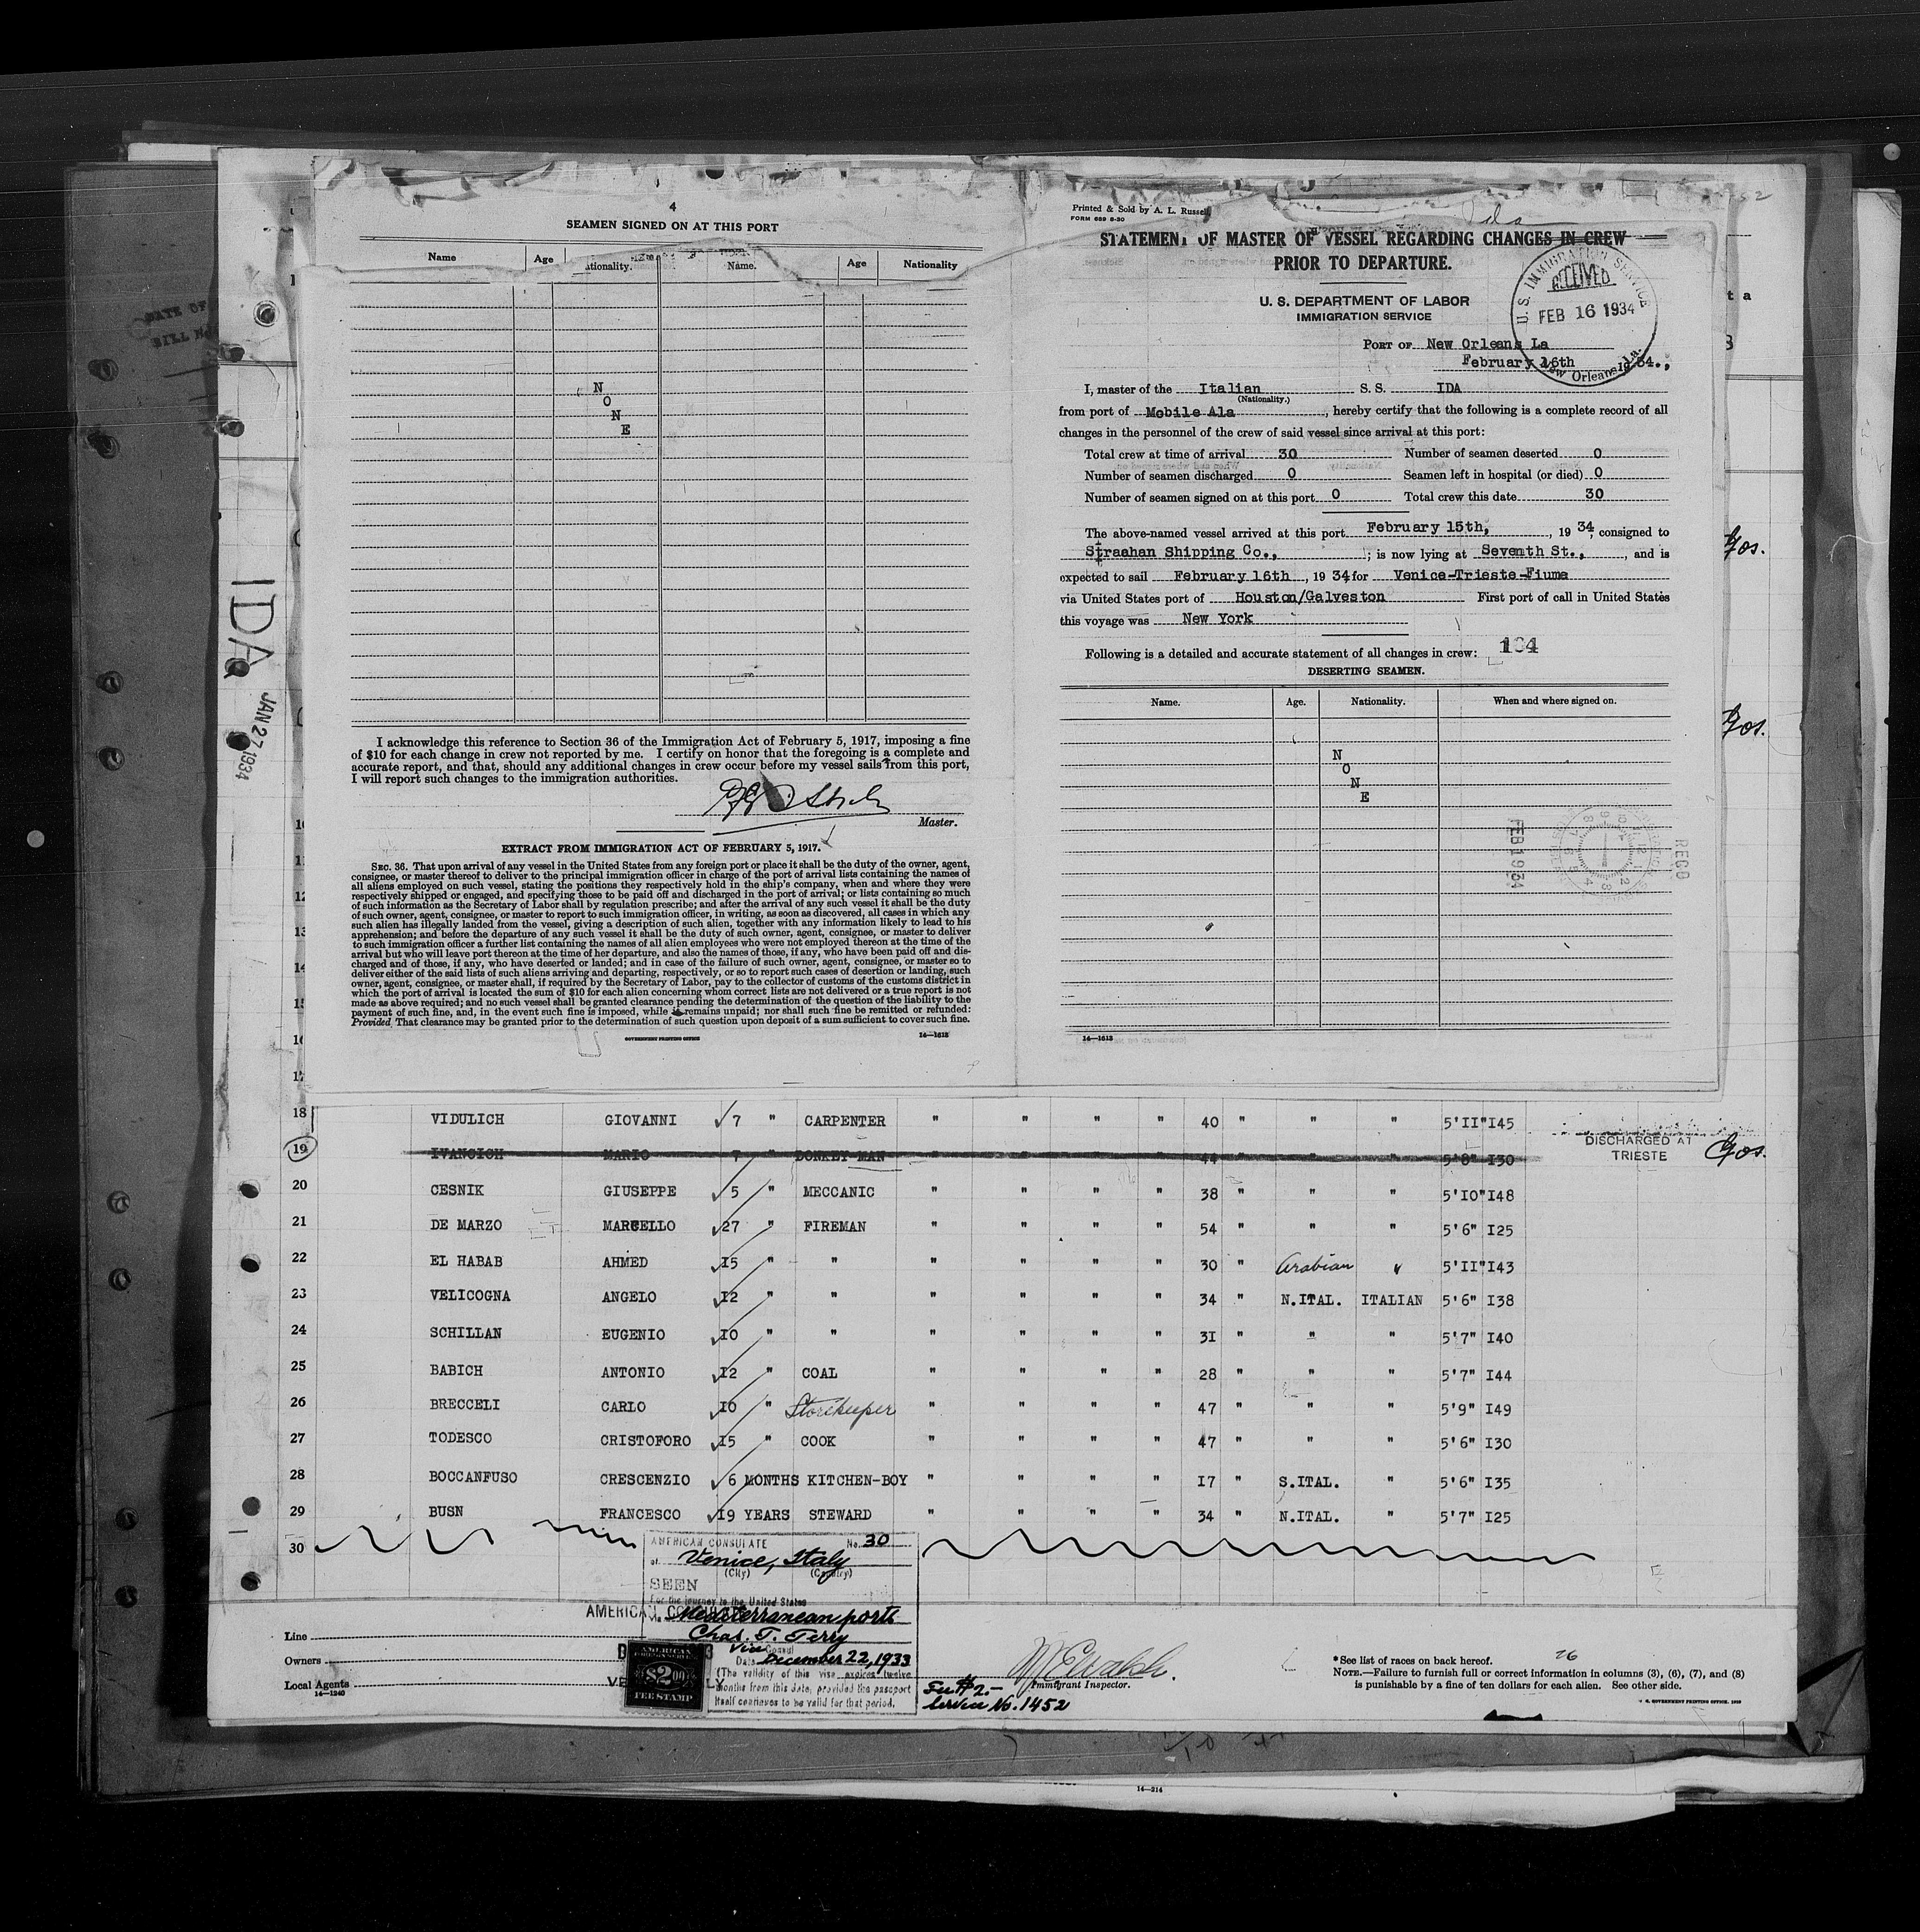 4
SEAMEN SIGNED ON AT THIS PORT
Name Age Nationality. Name. Age Nationality
N
O
N
E
I acknowledge this reference to Section 36 of the Immigration Act of February 5, 1917, imposing a fine
of $10 for each change in crew not reported by me. I certify on honor that the foregoing is a complete and
accurate report, and that, should any additional changes in crew occur before my vessel sails from this port,
I will report such changes to the immigration authorities.
Master.
EXTRACT FROM IMMIGRATION ACT OF FEBRUARY 5, 1917.
SEC. 36. That upon arrival of any vessel in the United States from any foreign port or place it shall be the duty of the owner, agent,
consignee, or master thereof to deliver to the principal immigration officer in charge of the port of arrival lists containing the names of
all aliens employed on such vessel, stating the positions they respectively hold in the ship's company, when and where they were
respectively shipped or engaged, and specifying those to be paid off and discharged in the port of arrival; or lists containing so much
of such information as the Secretary of Labor shall by regulation prescribe; and after the arrival of any such vessel it shall be the duty
of such owner, agent, consignee, or master to report to such immigration officer, in writing, as soon as discovered, all cases in which any
such alien has illegally landed from the vessel, giving a description of such alien, together with any information likely to lead to his
apprehension; and before the departure of any such vessel it shall be the duty of such owner, agent, consignee, or master to deliver
to such immigration officer a further list containing the names of all alien employees who were not employed thereon at the time of the
arrival but who will leave port thereon at the time of her departure, and also the names of those, if any, who have been paid off and dis-
charged and of those, if any, who have deserted or landed; and in case of the failure of such owner, agent, consignee, or master so to
deliver either of the said lists of such aliens arriving and departing, respectively, or so to report such cases of desertion or landing, such
owner, agent, consignee, or master shall, if required by the Secretary of Labor, pay to the collector of customs of the customs district in
which the port of arrival is located the sum of $10 for each alien concerning whom correct lists are not delivered or a true report is not
made as above required; and no such vessel shall be granted clearance pending the determination of the question of the liability to the
payment of such fine, and, in the event such fine is imposed, while it remains unpaid; nor shall such fine be remitted or refunded:
Provided, That clearance may be granted prior to the determination of such question upon deposit of a sum sufficient to cover such fine.
GOVERNMENT PRINTING OFFICE 14—1613
Printed & Sold by A. L. Russell
FORM 689 8-30
Ida
STATEMENT OF MASTER OF VESSEL REGARDING CHANGES IN CREW
PRIOR TO DEPARTURE.
U. S. DEPARTMENT OF LABOR
IMMIGRATION SERVICE
U. S. IMMIGRATION SERVICE
RECEIVED
FEB 16 1934
New Orleans, La.
PORT OF New Orleans La
February 16th 1934.,
I, master of the Italian S. S. IDA
(Nationality.)
from port of Mobile Ala, hereby certify that the following is a complete record of all
changes in the personnel of the crew of said vessel since arrival at this port:
Total crew at time of arrival 30 Number of seamen deserted 0
Number of seamen discharged 0 Seamen left in hospital (or died) 0
Number of seamen signed on at this port 0 Total crew this date 30
The above-named vessel arrived at this port February 15th, , 19 34, consigned to
Straahan Shipping Co., ; is now lying at Seventh St., , and is
expected to sail February 16th, 19 34 for Venice-Trieste-Fiume
via United States port of Houston/Galveston First port of call in United States
this voyage was New York
Following is a detailed and accurate statement of all changes in crew: 164
DESERTING SEAMEN.
Name. Age. Nationality. When and where signed on.
N
O
N
E
FEB 19 34
REC'D
14—1613
IDA
JAN 27 1934
DATE OF
BILL No
Gos.
Gos.
10
11
12
13
14
15
16
17
18 VIDULICH GIOVANNI 7 " CARPENTER " " " " 40 " " " 5'II" I45
19 IVANCICH MARIO 7 " DONKEY-MAN " " " " 44 " " " 5'8" I30 DISCHARGED AT TRIESTE Gos.
20 CESNIK GIUSEPPE 5 " MECCANIC " " " " 38 " " " 5'IO" I48
21 DE MARZO MARCELLO 27 " FIREMAN " " " " 54 " " " 5'6" I25
22 EL HABAB AHMED I5 " " " " " " 30 " Arabian " 5'II" I43
23 VELICOGNA ANGELO I2 " " " " " " 34 " N.ITAL. ITALIAN 5'6" I38
24 SCHILLAN EUGENIO IO " " " " " " 3I " " " 5'7" I40
25 BABICH ANTONIO I2 " COAL " " " " 28 " " " 5'7" I44
26 BRECCELI CARLO IO " Storekeeper " " " " 47 " " " 5'9" I49
27 TODESCO CRISTOFORO I5 " COOK " " " " 47 " " " 5'6" I30
28 BOCCANFUSO CRESCENZIO 6 MONTHS KITCHEN-BOY " " " " I7 " S.ITAL. " 5'6" I35
29 BUSN FRANCESCO I9 YEARS STEWARD " " " " 34 " N.ITAL. " 5'7" I25
30
AMERICAN CONSULATE No. 30
at Venice, Italy
(City) (Country)
SEEN
For the journey to the United States
via Mediterranean ports
Chas. T. Terry
Vice Consul
Date December 22, 1933
(The validity of this visa expires twelve
months from this date, provided the passport
itself continues to be valid for that period.
AMERICAN
$2.00
FEE STAMP
Line
Owners
Local Agents
14—1240
Immigrant Inspector.
Fee $2.-
Service No. 1452
26
*See list of races on back hereof.
NOTE.—Failure to furnish full or correct information in columns (3), (6), (7), and (8)
is punishable by a fine of ten dollars for each alien. See other side.
U. S. GOVERNMENT PRINTING OFFICE
14—214